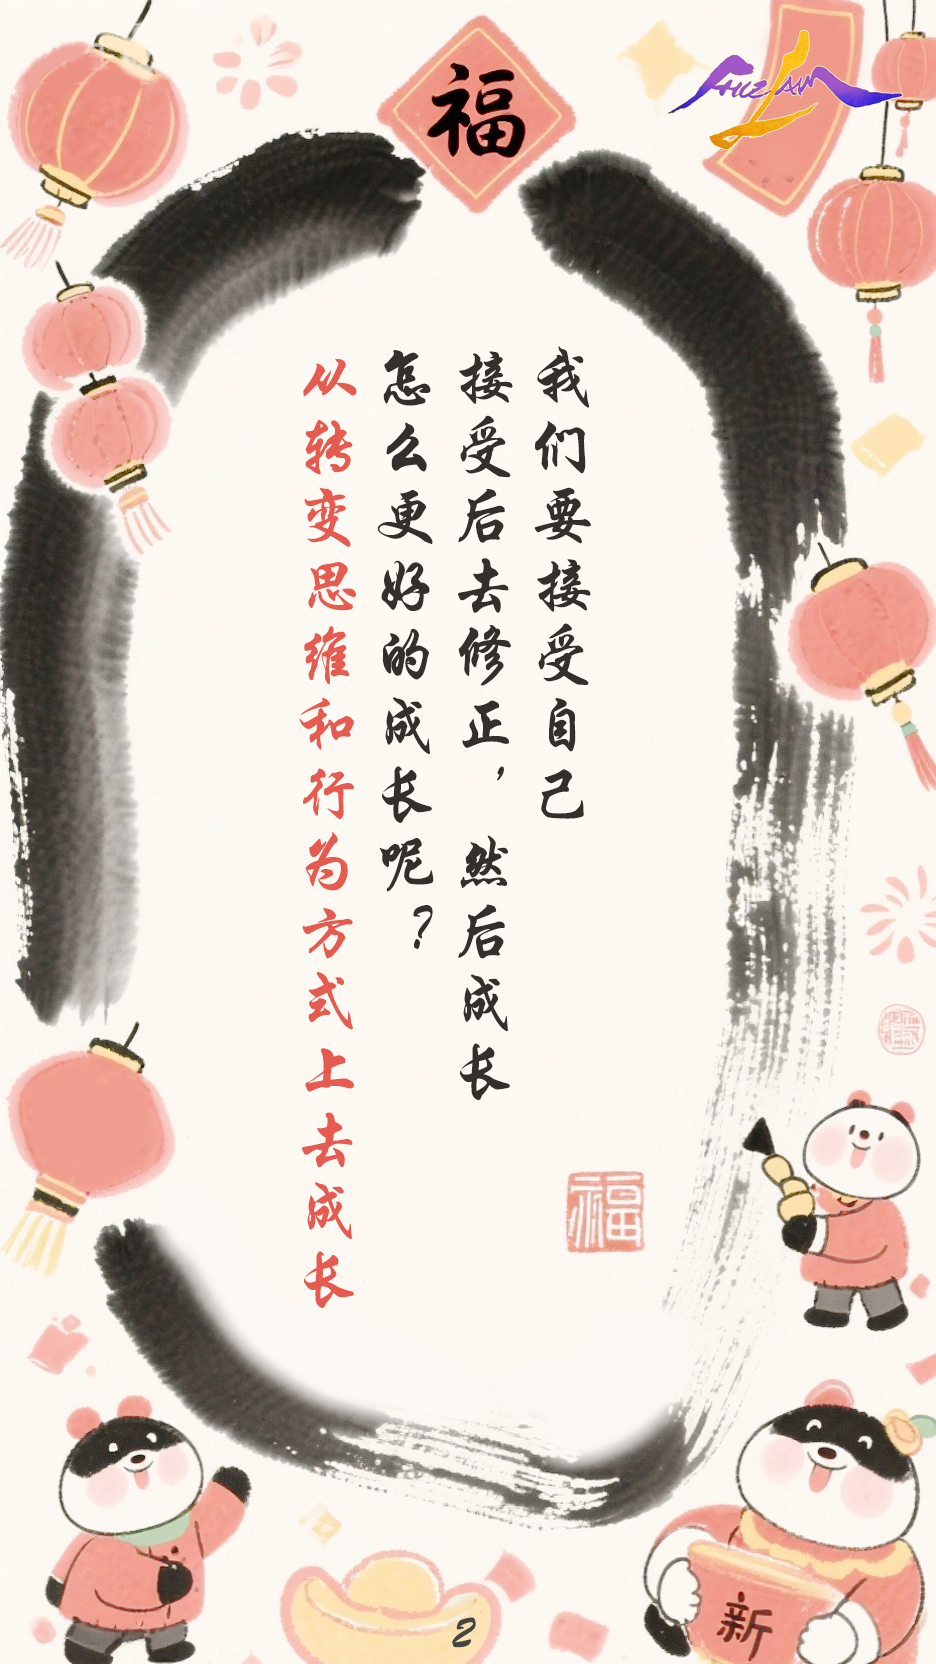 福
我们要接受自己
接受后去修正，然后成长
怎么更好的成长呢？
从转变思维和行为方式上去成长
福
新
2